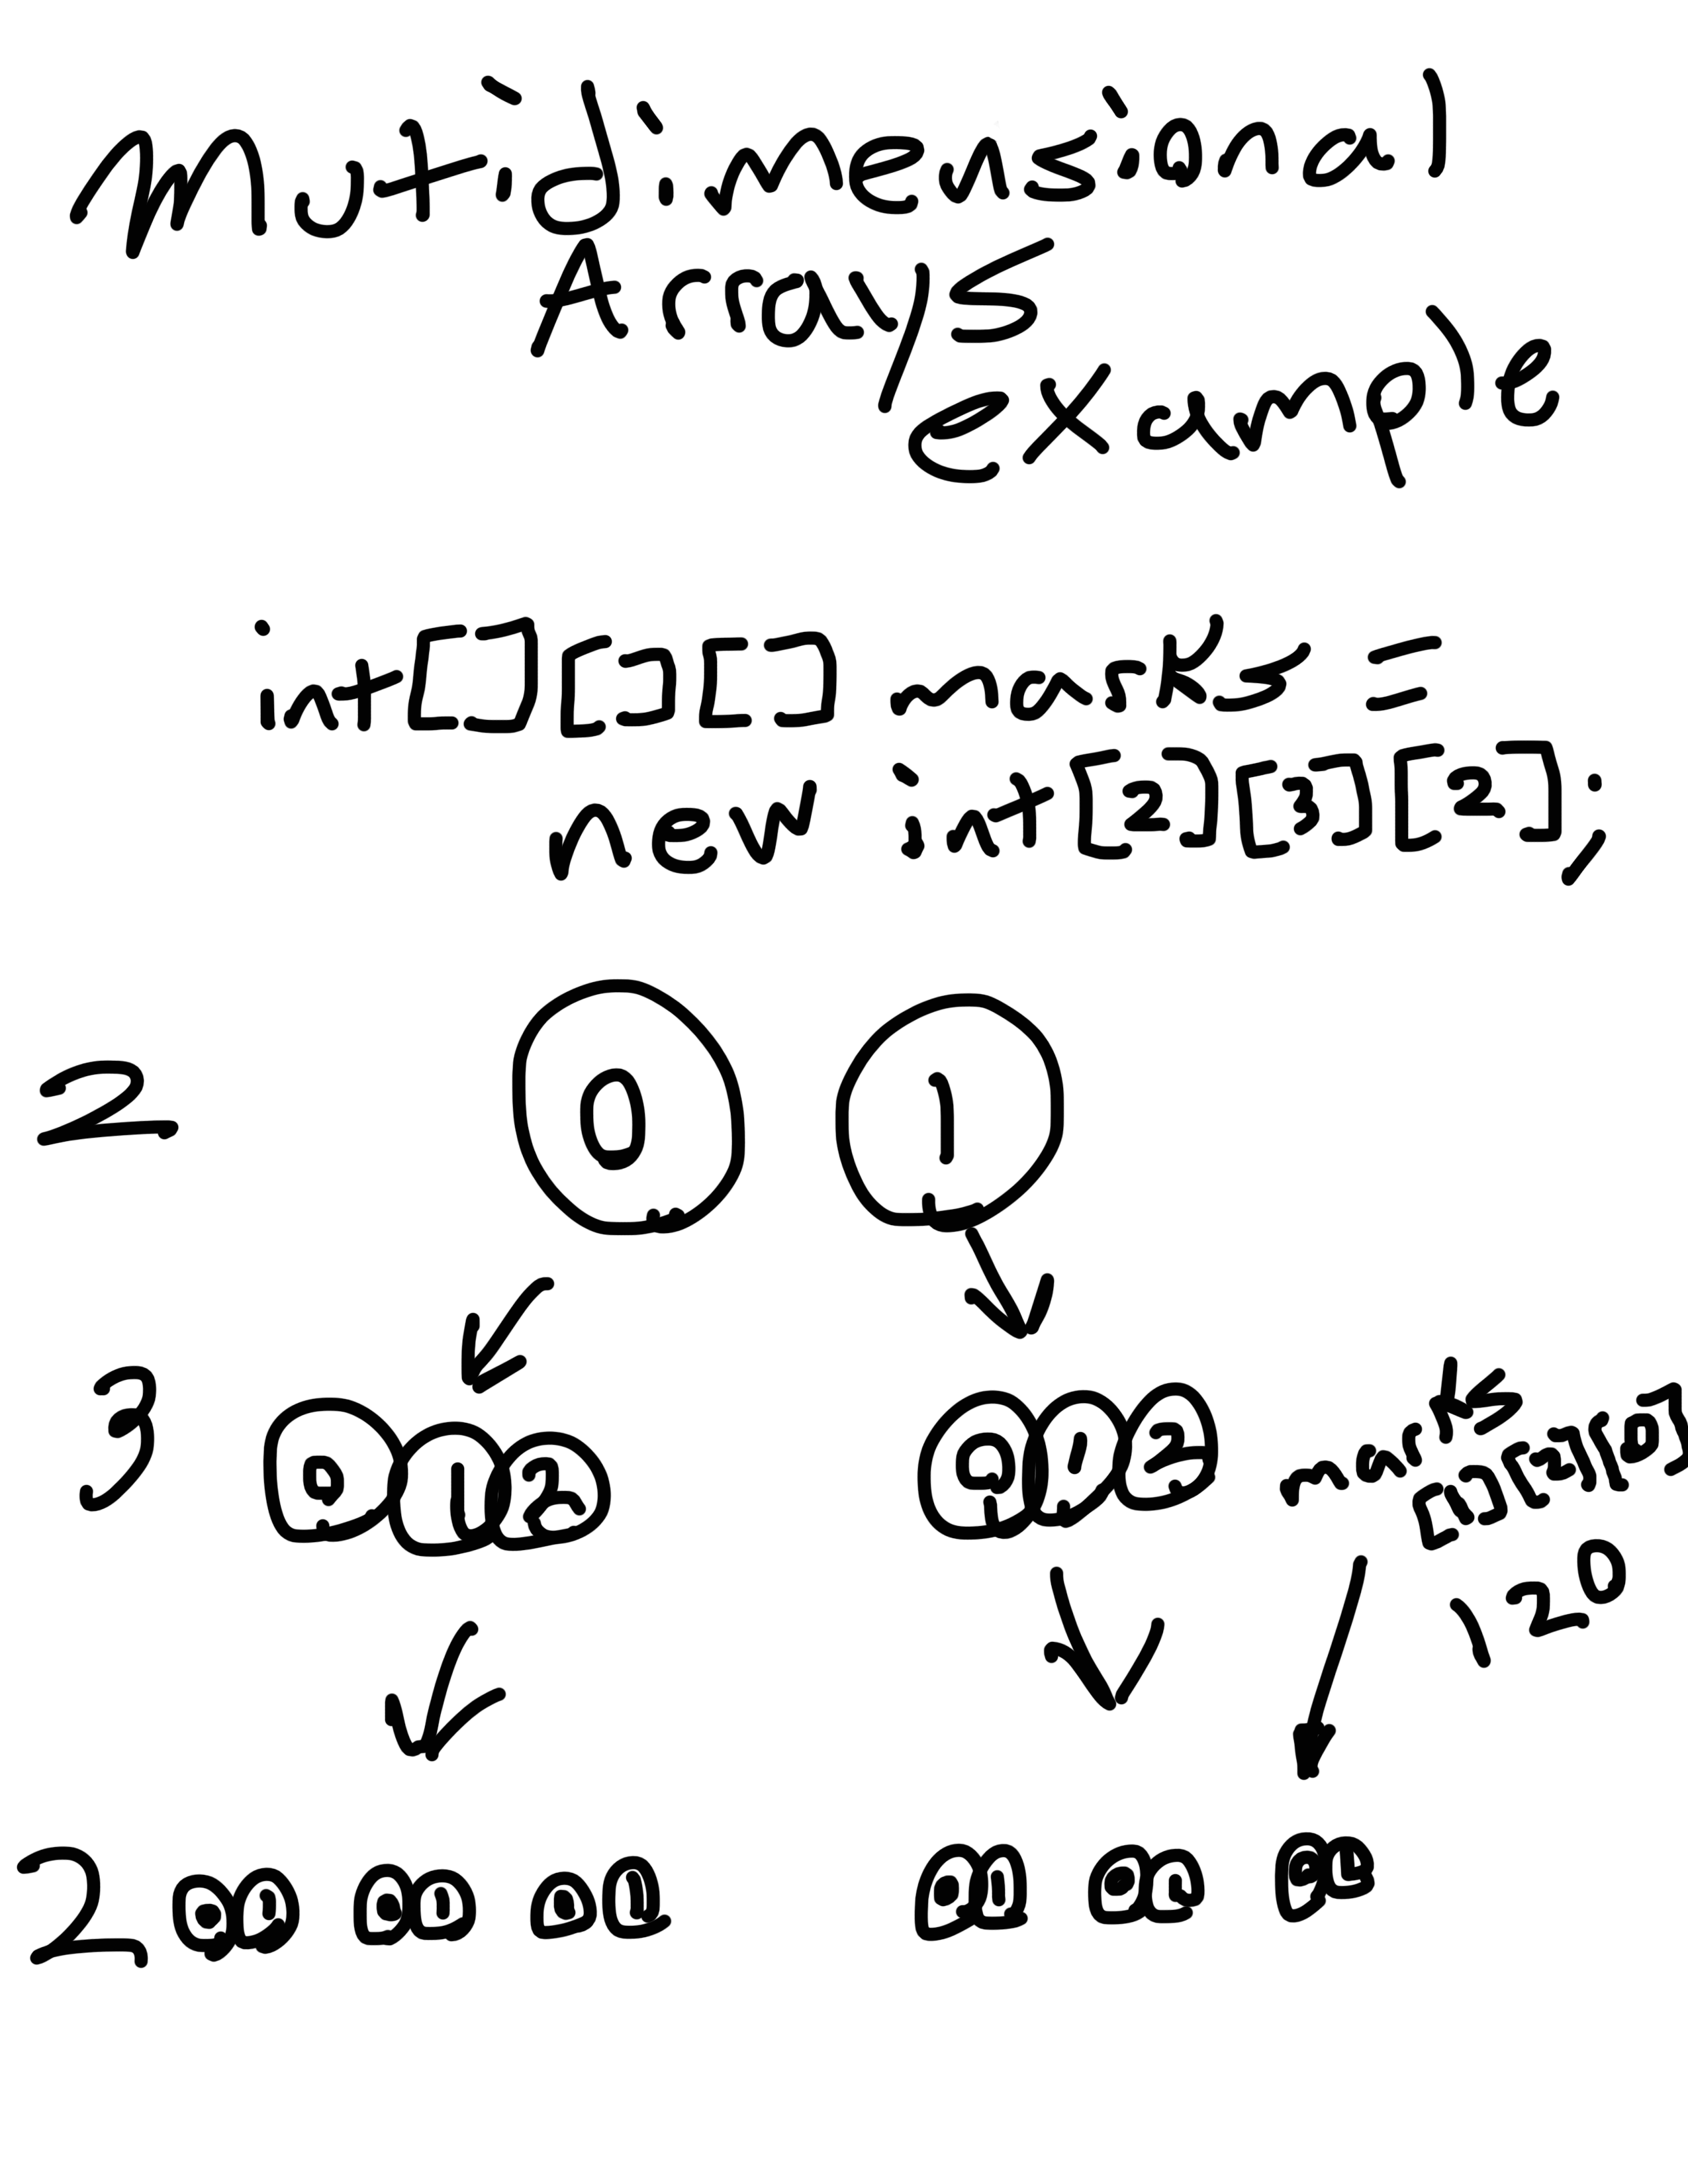 Mutidimensional
Arrays
example
int[][][] marks =
new int[2][3][2];
2 0 1
3 0 1 2 0 1 2 marks
[1][2][0]
1 2 0
2 0 1 0 1 0 1 0 1 0 1 0 1